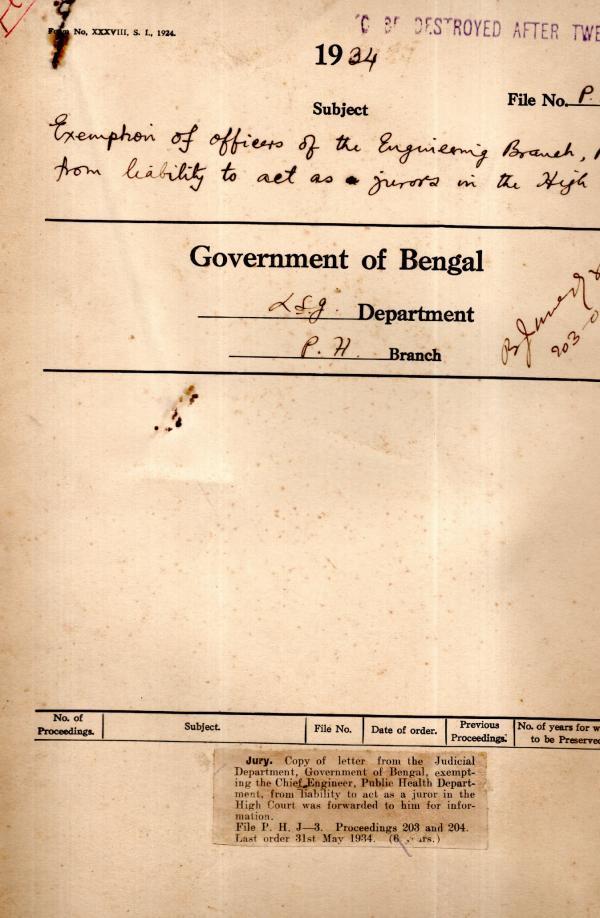 Form No, XXXVIII, S. I., 1924.
TO BE DESTROYED AFTER TWE
1934
File No. P.
Subject
Exemption of officers of the Engineering Branch,
from liability to act as jurors in the High
Government of Bengal
L S. G. Department
P. H. Branch
203
No. of Proceedings.
Subject.
File No.
Date of order.
Previous Proceedings.
No. of years for w
to be Preserved
Jury. Copy of letter from the Judicial
Department, Government of Bengal, exempt-
ing the Chief Engineer, Public Health Depart-
ment, from liability to act as a juror in the
High Court was forwarded to him for infor-
mation.
File P. H. J—3. Proceedings 203 and 204.
Last order 31st May 1934. (6 years.)